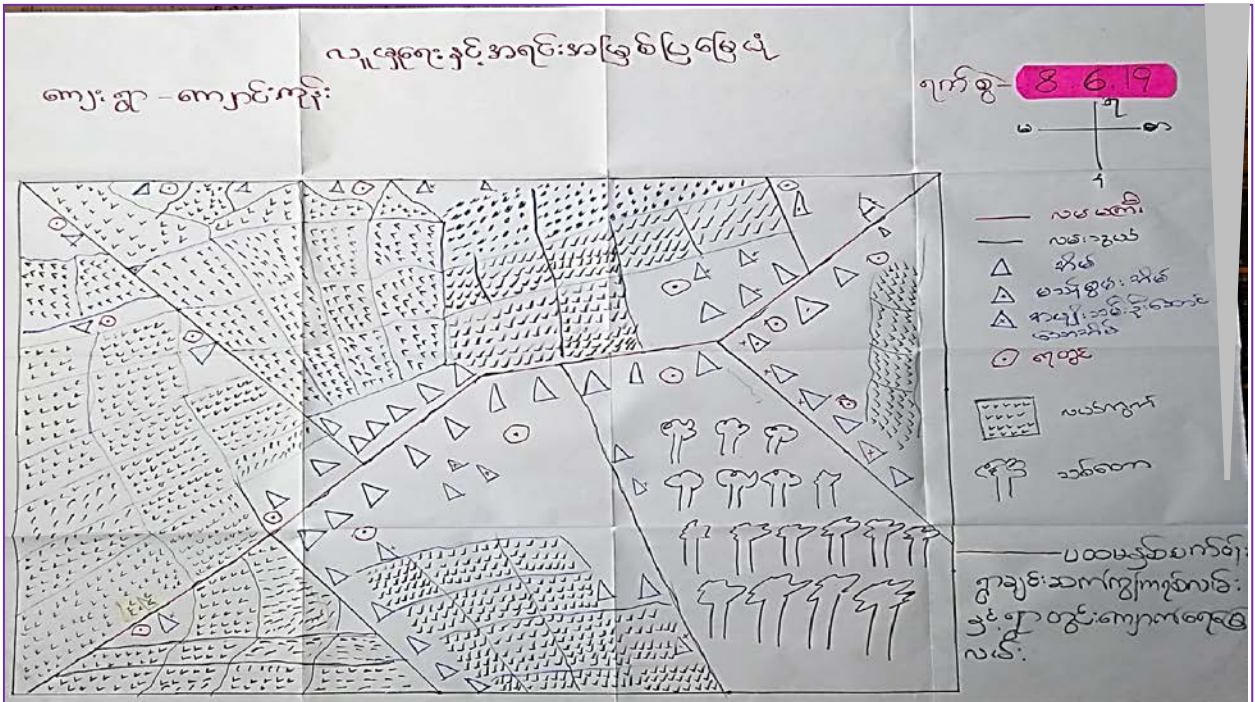 လူမှုရေးနှင့်အရင်းအမြစ်ပြမြေပုံ
ကျေးရွာ - ကျောင်းကုန်း
ရက်စွဲ - 8.6.19
လမ်းမကြီး
လမ်းသွယ်
အိမ်
မသန်စွမ်းအိမ်
အမျိုးသမီးဦးဆောင်
သောအိမ်
ရေတွင်း
လယ်ကွက်
သစ်တော
ရွာချင်းဆက်ကွန်ကရစ်လမ်း
နှင့်ရွာတွင်းကျောက်ချောမြေ
လမ်း